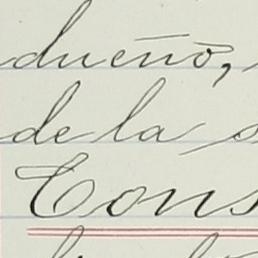 dueño,
de la s
Cons